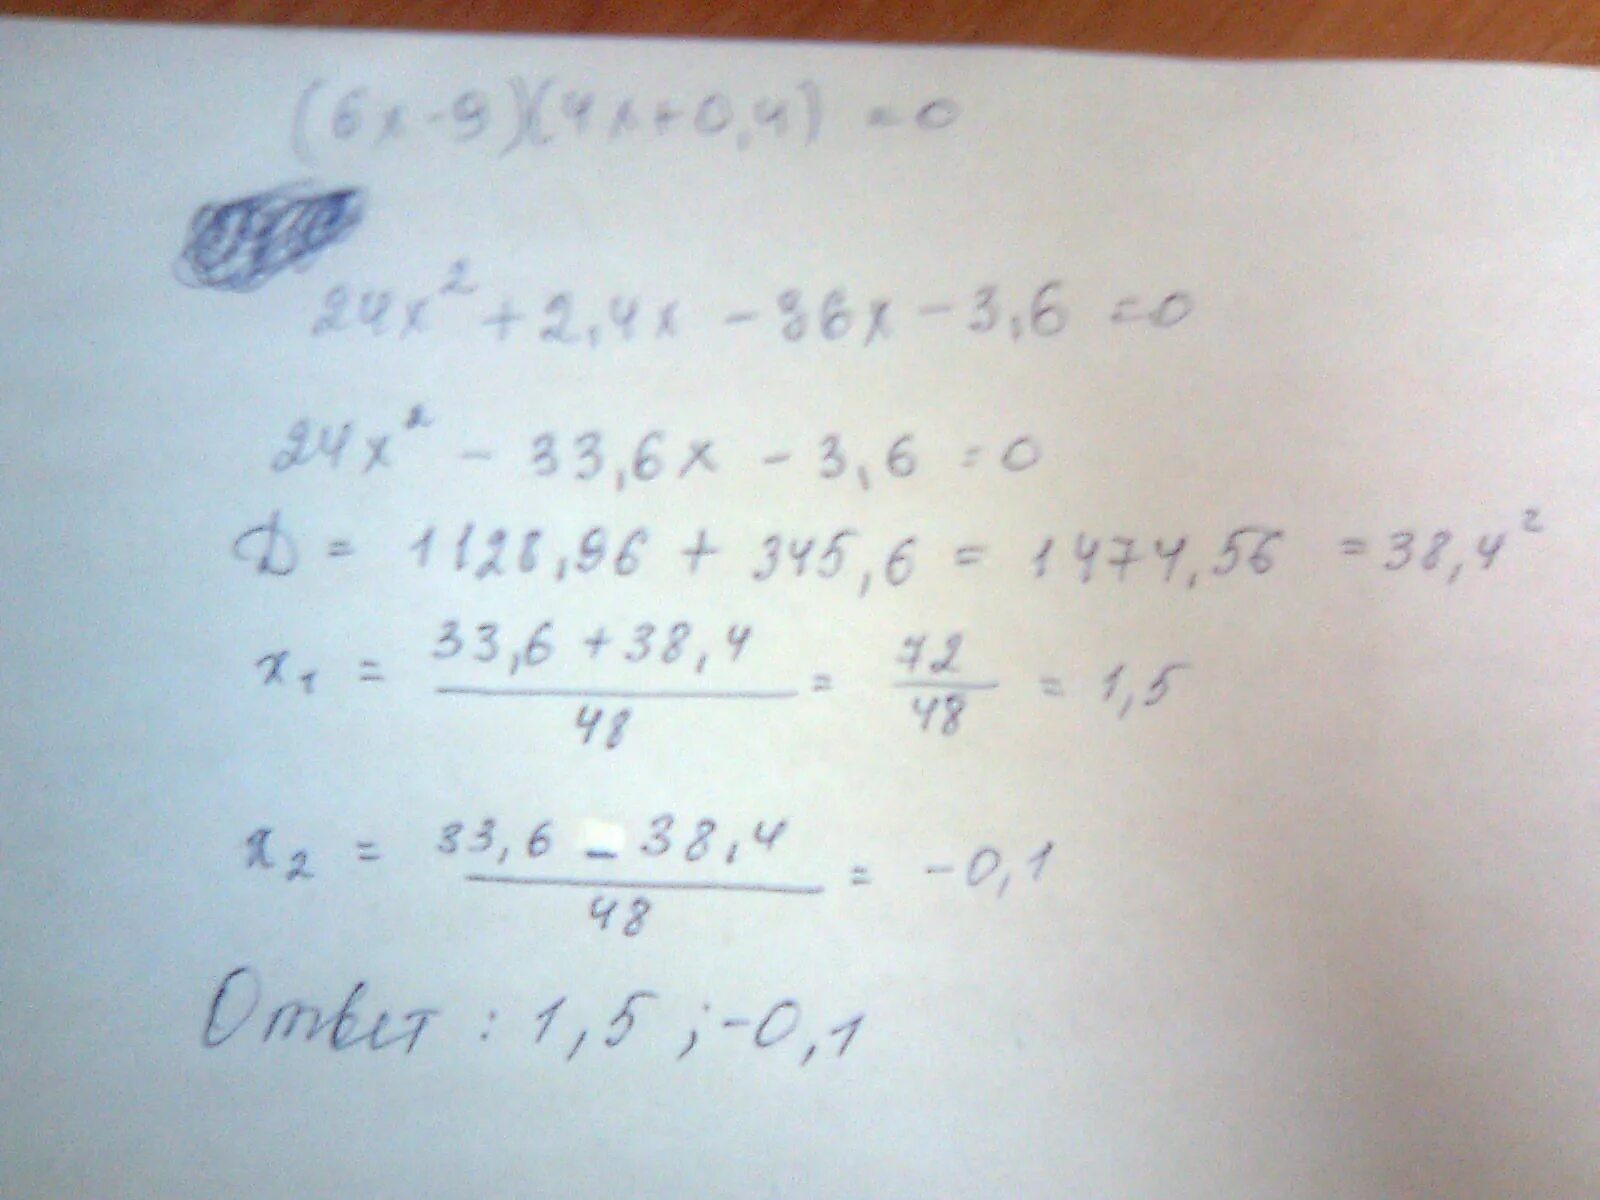 (6x-9)(4x+0,4) =0
24x² + 2,4x - 36x - 3,6 = 0
24x² - 33,6x - 3,6 = 0
D = 1128,96 + 345,6 = 1474,56 = 38,4²
x₁ = (33,6 + 38,4)/48 = 72/48 = 1,5
x₂ = (33,6 - 38,4)/48 = -0,1
Ответ : 1,5 ; -0,1